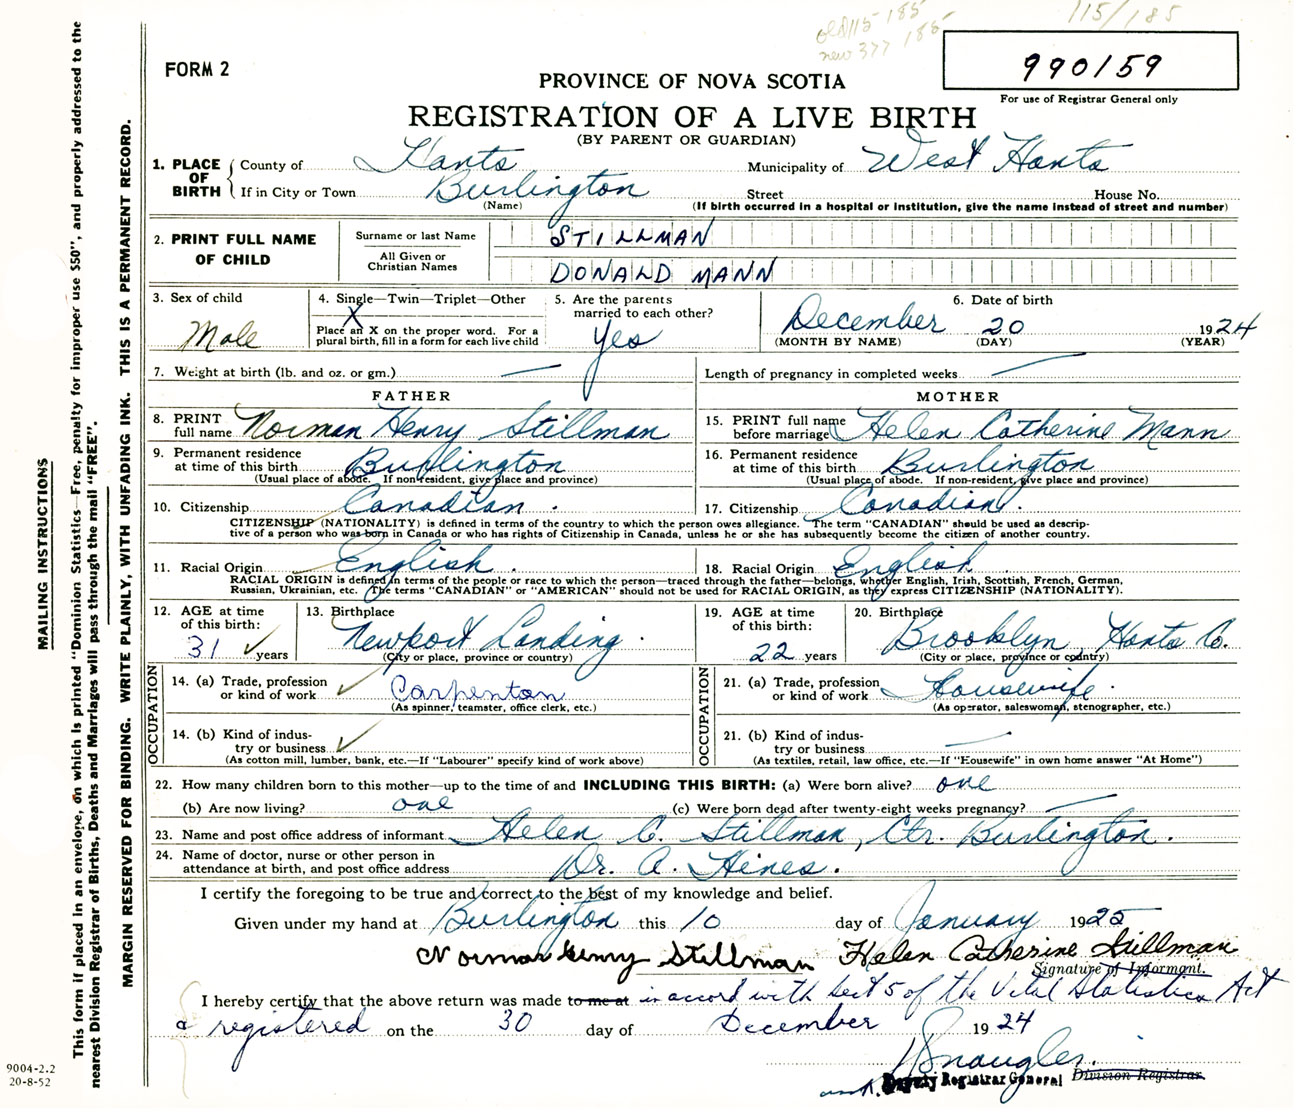 old 115-185
new 377 185
115/185
990159
For use of Registrar General only
FORM 2
PROVINCE OF NOVA SCOTIA
REGISTRATION OF A LIVE BIRTH
(BY PARENT OR GUARDIAN)
1. PLACE OF BIRTH { County of Hants Municipality of West Hants
If in City or Town Burlington Street House No.
(Name) (If birth occurred in a hospital or institution, give the name instead of street and number)
2. PRINT FULL NAME OF CHILD
Surname or last Name STILLMAN
All Given or Christian Names DONALD MANN
3. Sex of child Male
4. Single—Twin—Triplet—Other
X
Place an X on the proper word. For a
plural birth, fill in a form for each live child
5. Are the parents
married to each other?
Yes
6. Date of birth
December 20 1924
(MONTH BY NAME) (DAY) (YEAR)
7. Weight at birth (lb. and oz. or gm.) — Length of pregnancy in completed weeks —
FATHER MOTHER
8. PRINT full name Norman Henry Stillman
15. PRINT full name before marriage Helen Catherine Mann
9. Permanent residence at time of this birth Burlington
(Usual place of abode. If non-resident, give place and province)
16. Permanent residence at time of this birth Burlington
(Usual place of abode. If non-resident, give place and province)
10. Citizenship Canadian. 17. Citizenship Canadian.
CITIZENSHIP (NATIONALITY) is defined in terms of the country to which the person owes allegiance. The term "CANADIAN" should be used as descrip-
tive of a person who was born in Canada or who has rights of Citizenship in Canada, unless he or she has subsequently become the citizen of another country.
11. Racial Origin English. 18. Racial Origin English.
RACIAL ORIGIN is defined in terms of the people or race to which the person—traced through the father—belongs, whether English, Irish, Scottish, French, German,
Russian, Ukrainian, etc. The terms "CANADIAN" or "AMERICAN" should not be used for RACIAL ORIGIN, as they express CITIZENSHIP (NATIONALITY).
12. AGE at time of this birth: 31 years
13. Birthplace Newport Landing.
(City or place, province or country)
19. AGE at time of this birth: 22 years
20. Birthplace Brooklyn, Hants Co.
(City or place, province or country)
OCCUPATION
14. (a) Trade, profession or kind of work Carpenton
(As spinner, teamster, office clerk, etc.)
14. (b) Kind of indus-
try or business
(As cotton mill, lumber, bank, etc.—If "Labourer" specify kind of work above)
OCCUPATION
21. (a) Trade, profession or kind of work Housewife.
(As operator, saleswoman, stenographer, etc.)
21. (b) Kind of indus-
try or business —
(As textiles, retail, law office, etc.—If "Housewife" in own home answer "At Home")
22. How many children born to this mother—up to the time of and INCLUDING THIS BIRTH: (a) Were born alive? one
(b) Are now living? one (c) Were born dead after twenty-eight weeks pregnancy? —
23. Name and post office address of informant Helen C. Stillman, Ctr. Burlington.
24. Name of doctor, nurse or other person in
attendance at birth, and post office address Dr. A. Hines.
I certify the foregoing to be true and correct to the best of my knowledge and belief.
Given under my hand at Burlington this 10 day of January 1925
Norman Henry Stillman Helen Catherine Stillman
Signature of Informant.
I hereby certify that the above return was made to me at in accord with Sect 5 of the Vital Statistics Act
& registered on the 30 day of December 1924
Deputy Registrar General Division Registrar
MAILING INSTRUCTIONS
This form if placed in an envelope, on which is printed "Dominion Statistics—Free, penalty for improper use $50", and properly addressed to the
nearest Division Registrar of Births, Deaths and Marriages will pass through the mail "FREE".
MARGIN RESERVED FOR BINDING. WRITE PLAINLY, WITH UNFADING INK. THIS IS A PERMANENT RECORD.
9004-2.2
20-8-52